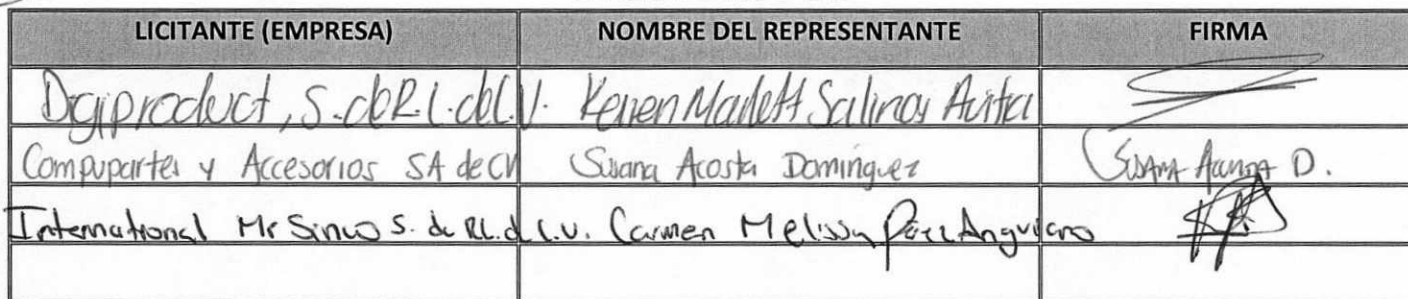 LICITANTE (EMPRESA) NOMBRE DEL REPRESENTANTE FIRMA
Digiproduct, S. de R.L. de C.V. Keren Marlett Salinas Avita
Compupartes y Accesorios SA de CV Susana Acosta Domínguez SUSANA ACOSTA D.
International Mr Sinco S. de RL. d C.V. Carmen Melissa Pérez Anguiano